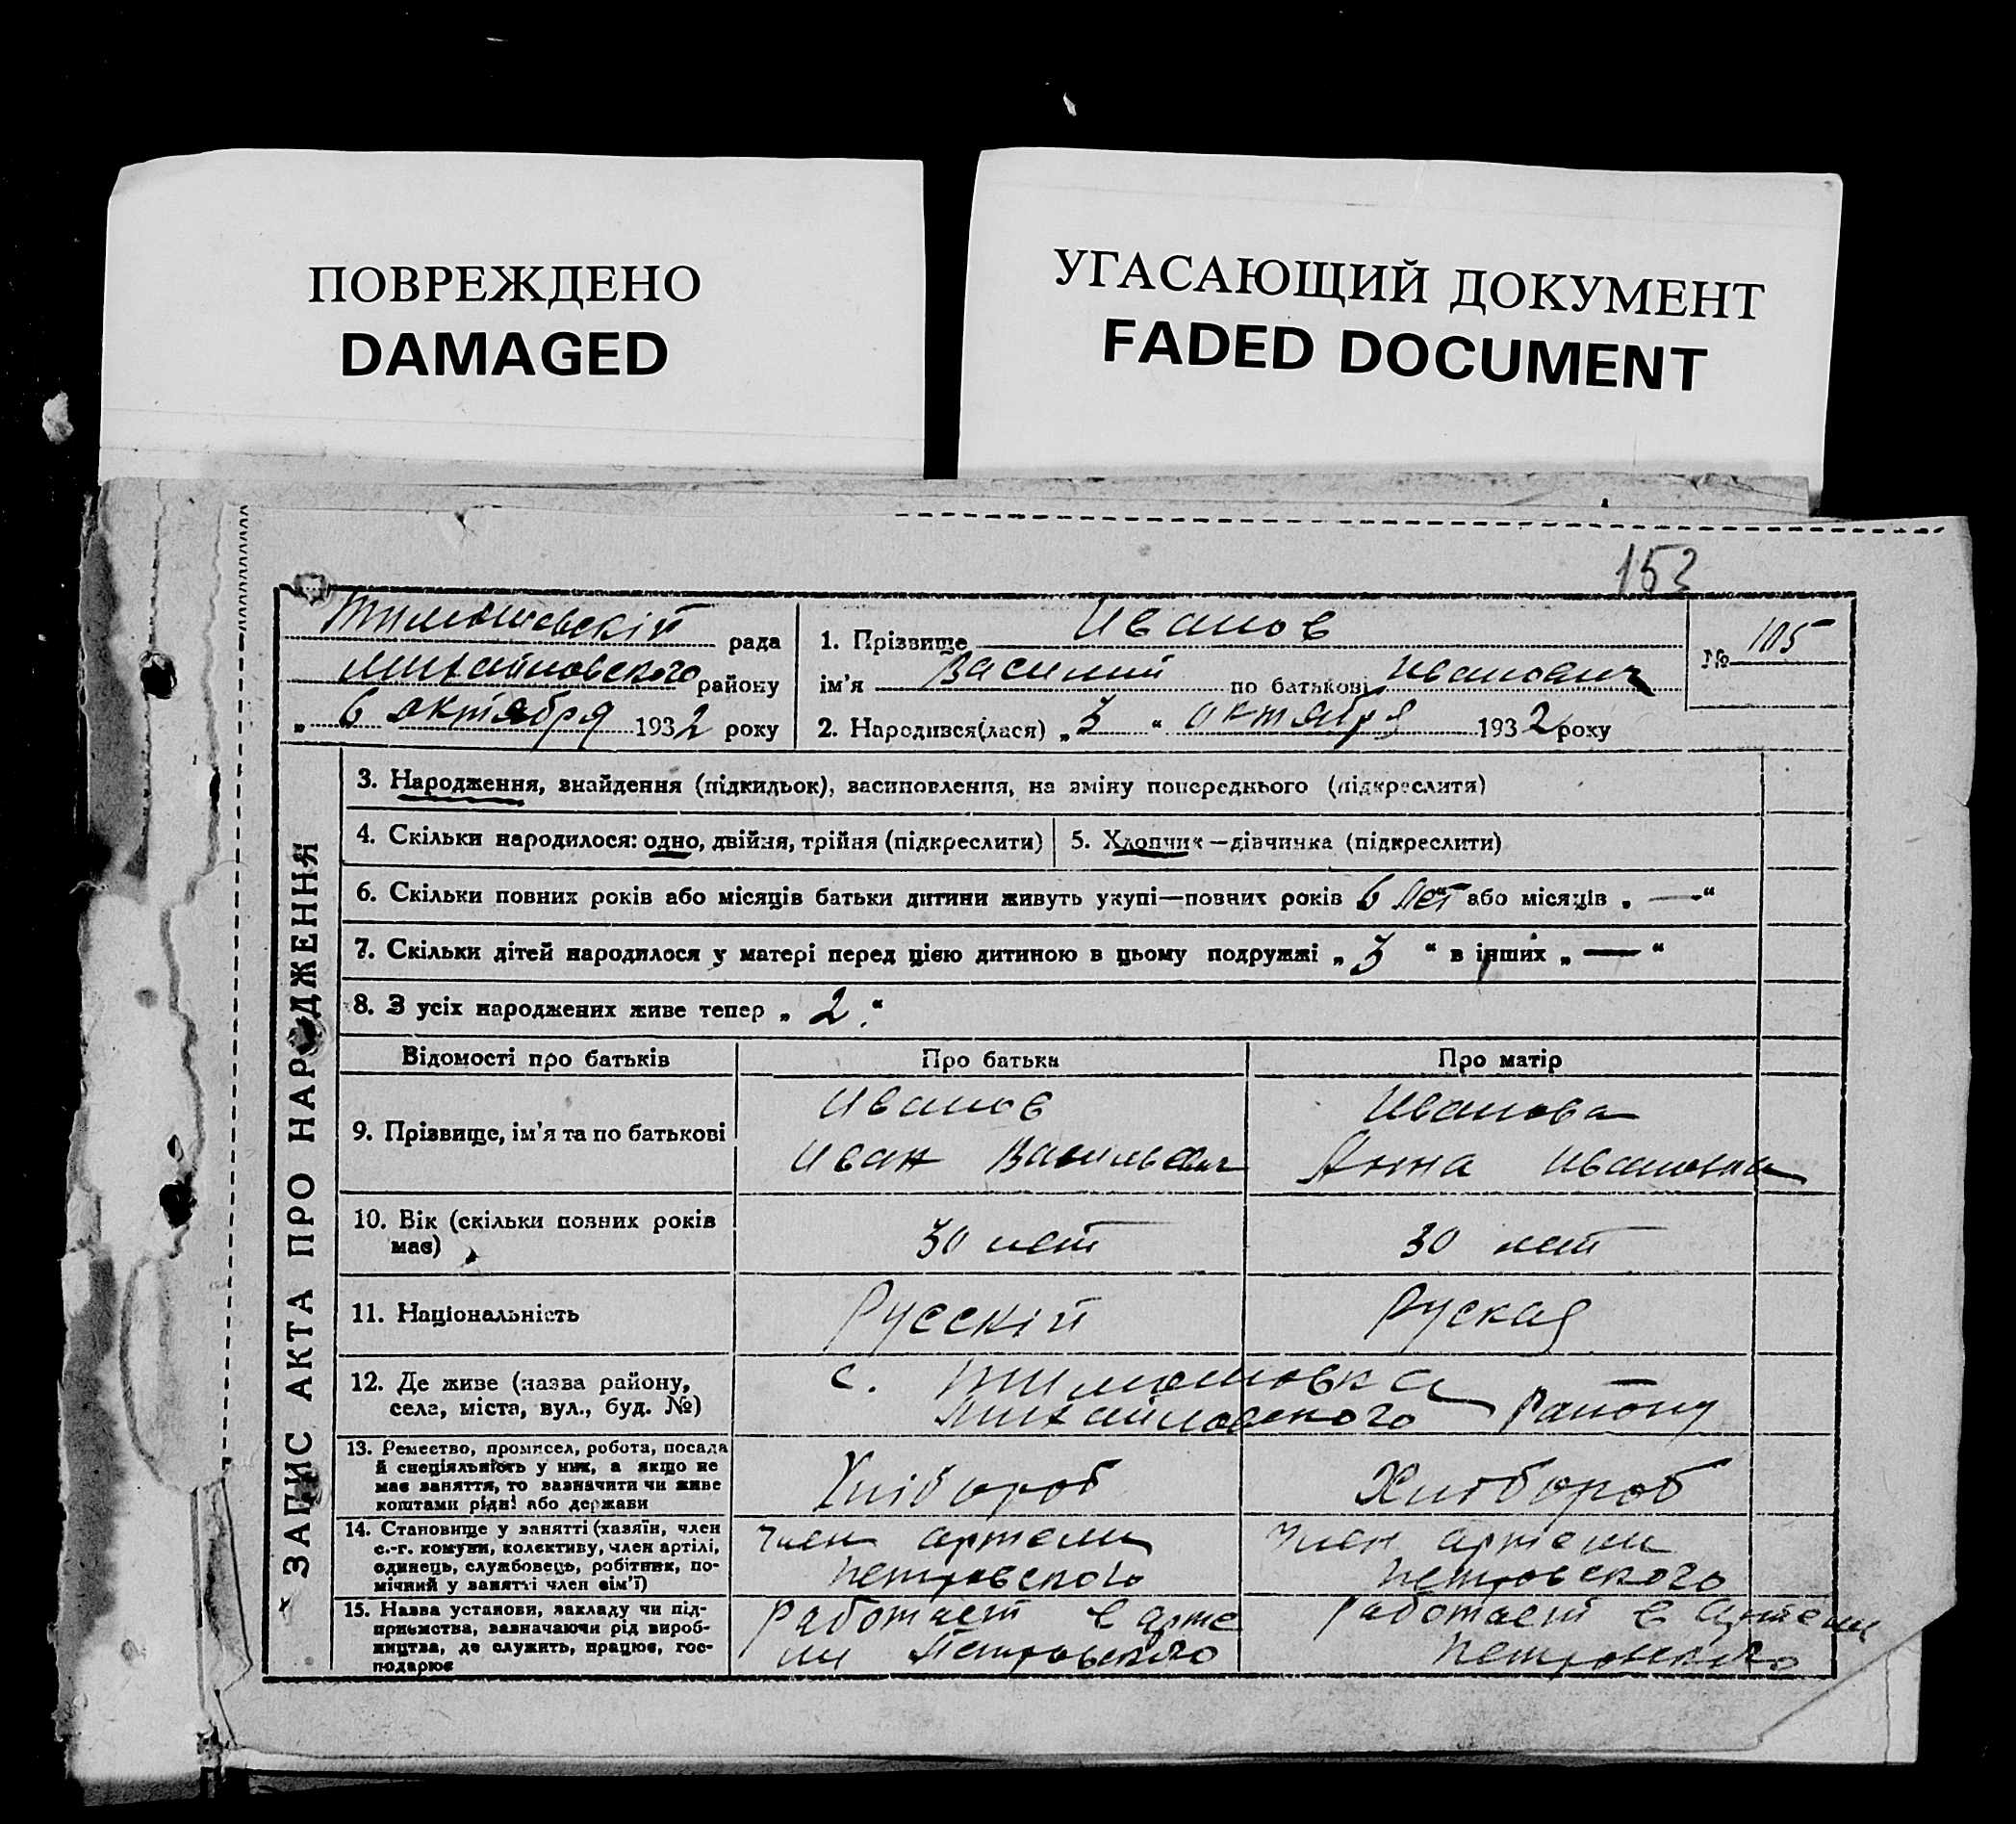 ПОВРЕЖДЕНО
DAMAGED
УГАСАЮЩИЙ ДОКУМЕНТ
FADED DOCUMENT
153
Тимошевскій рада
Михайловского району
„ 6 октября 1932 року
1. Прізвище Иванов
ім'я Василий по батькові Иванович
2. Народився(лася) „ 3 “ октября 1932 року
№ 105
ЗАПИС АКТА ПРО НАРОДЖЕННЯ
3. Народження, знайдення (підкидьок), засиновлення, на зміну попереднього (підкреслити)
4. Скільки народилося: одно, двійня, трійня (підкреслити)
5. Хлопчик—дівчинка (підкреслити)
6. Скільки повних років або місяців батьки дитини живуть укупі—повних років 6 лет або місяців „ — “
7. Скільки дітей народилося у матері перед цією дитиною в цьому подружжі „ 3 “ в інших „ — “
8. З усіх народжених живе тепер „ 2 “
Відомості про батьків Про батька Про матір
9. Прізвище, ім'я та по батькові
Иванов
Иван Васильевич
Иванова
Анна Ивановна
10. Вік (скільки повних років
має)
30 лет
30 лет
11. Національність
Русскій
Руская
12. Де живе (назва району,
села, міста, вул., буд. №)
с. Тимошовка
Михайловского Району
13. Ремество, промисел, робота, посада
й спеціяльність у них, а якщо не
має заняття, то зазначити чи живе
коштами рідні або держави
Хлібороб
Хлібороб
14. Становище у занятті (хазяїн, член
с.-г. комуни, колективу, член артілі,
одинець, службовець, робітник, по-
мічний у занятті член сім'ї)
член артели
Петровского
член артели
Петровского
15. Назва установи, закладу чи під-
приємства, зазначаючи рід вироб-
ництва, де служить, працює, гос-
подарює
Работает в арте
ли Петровского
Работает в артели
Петровского